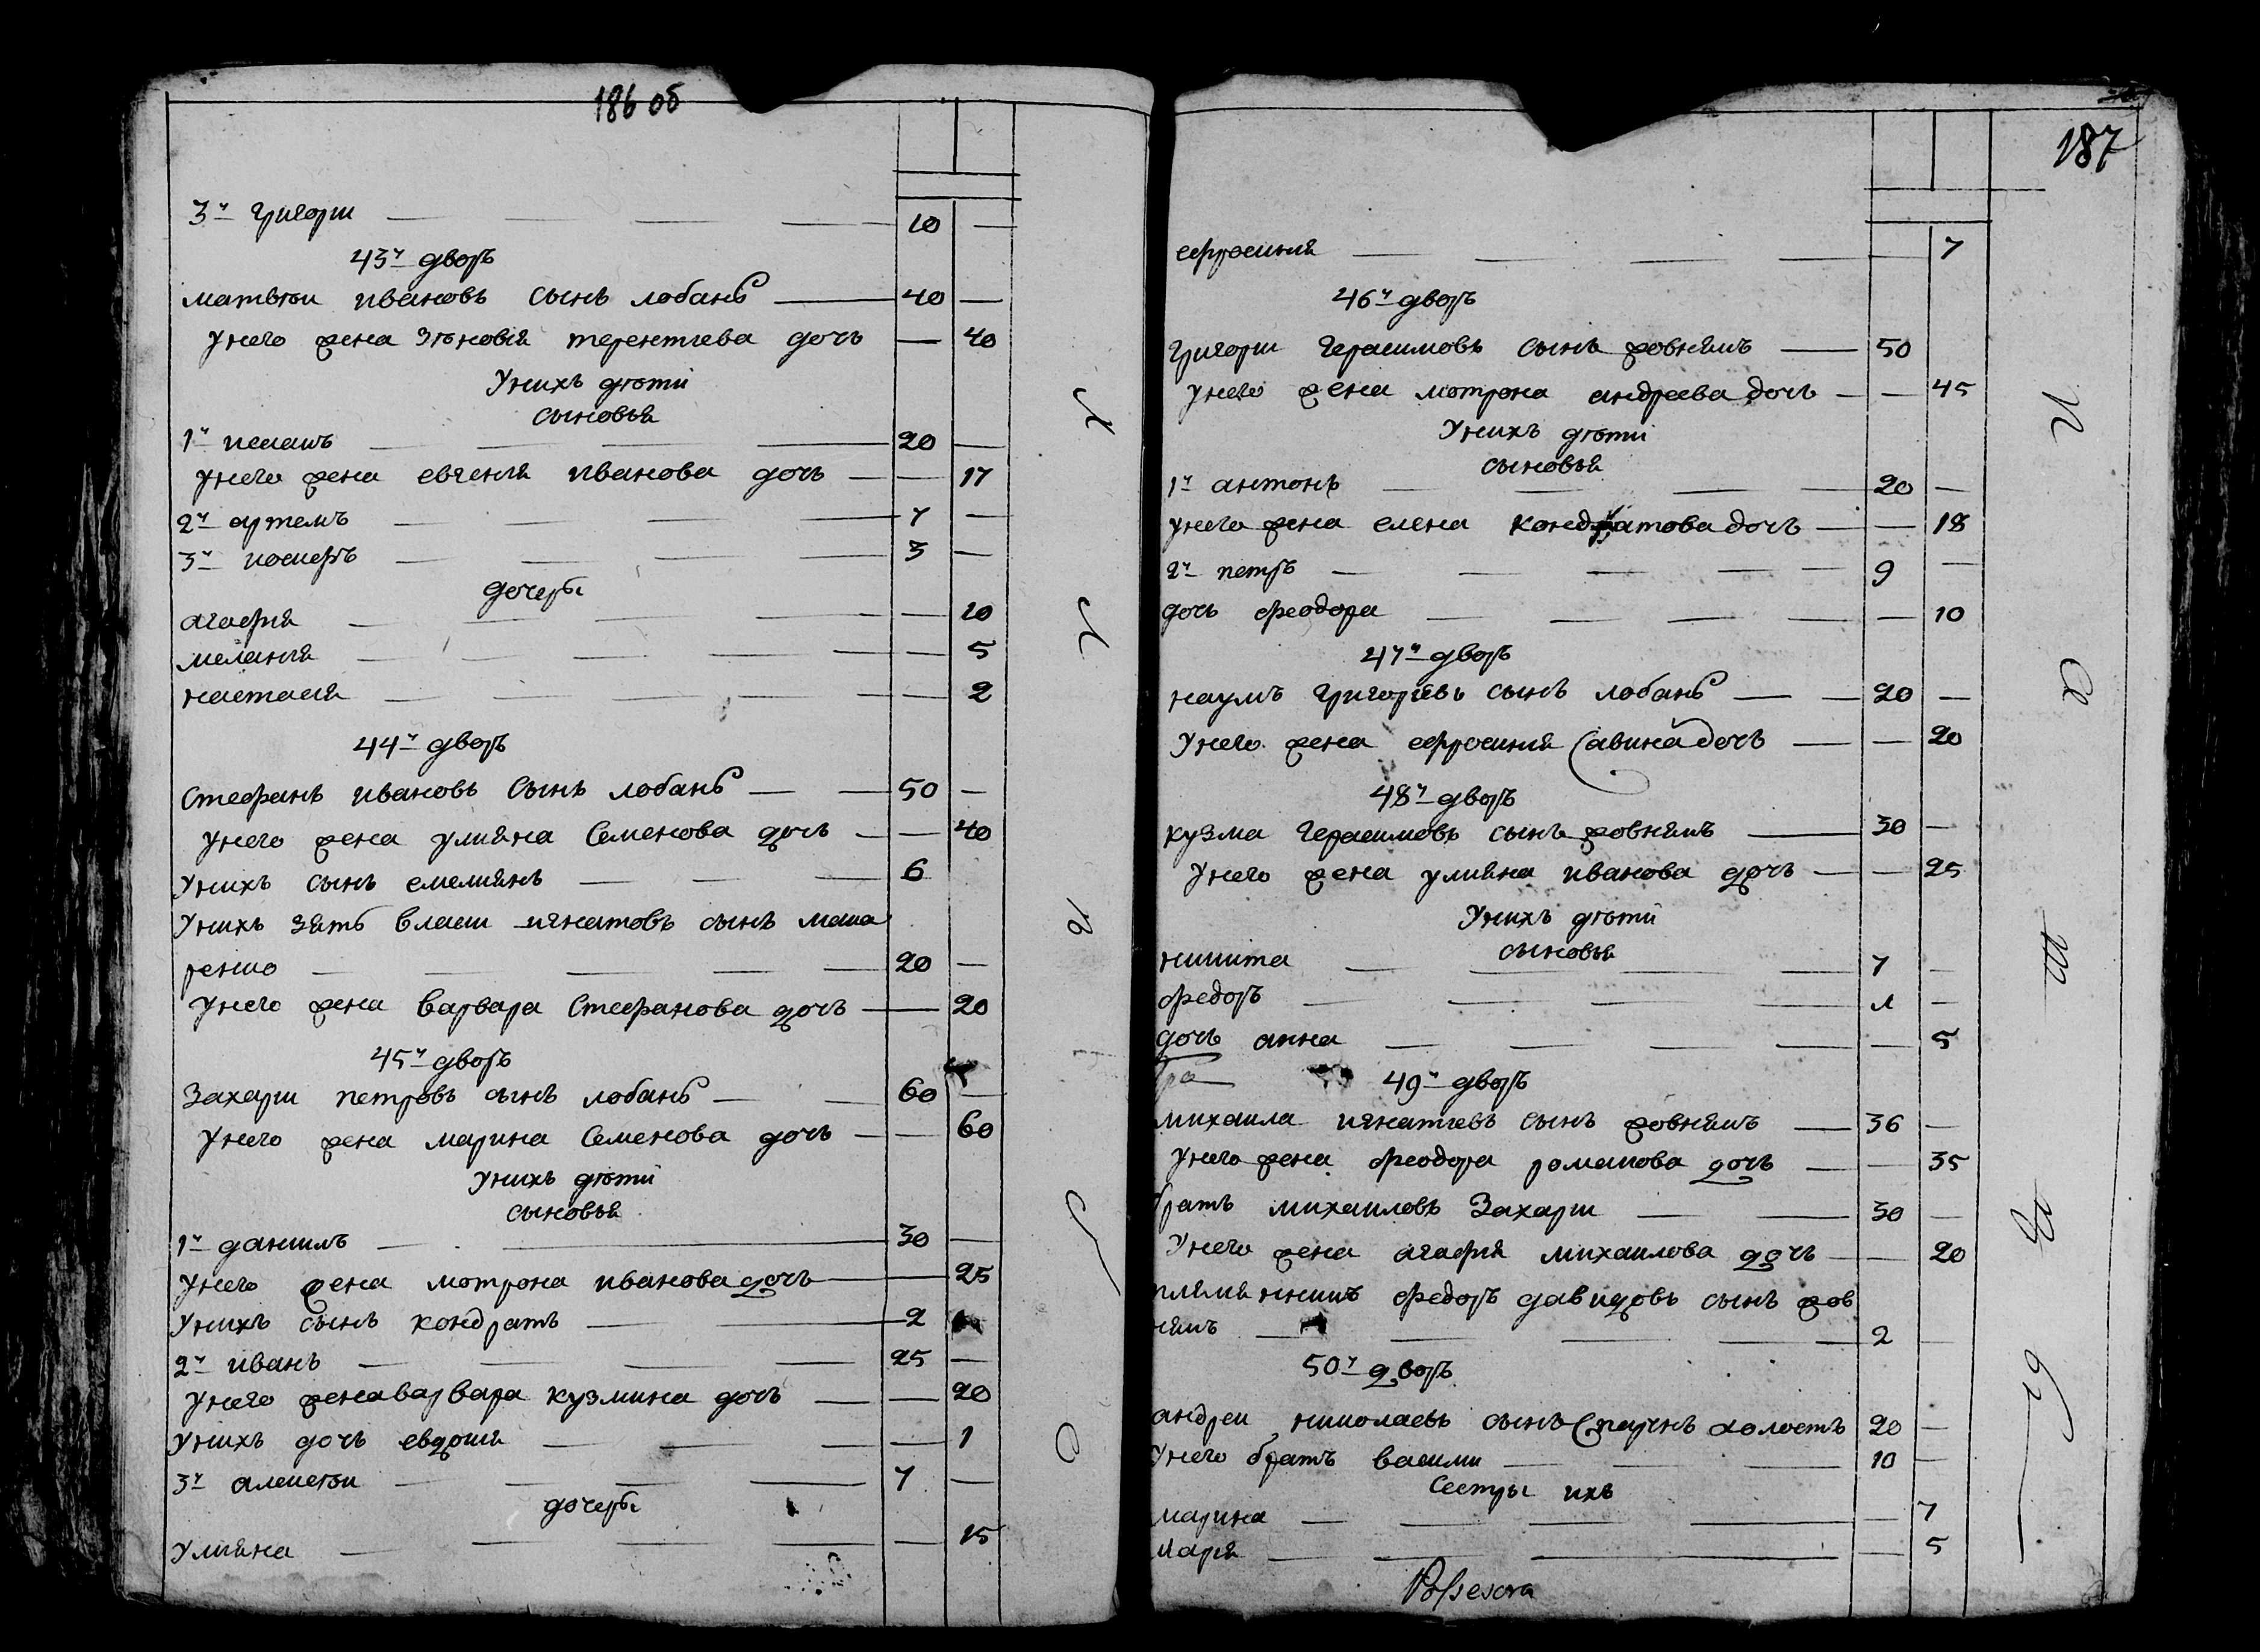 186 об
3й григори — 10 —
43й дворъ
матвѣи ивановъ сынъ лобанъ — 40 —
унего жена зѣновия терентиева дочь — 40
унихъ дѣти
сыновья
1й исаакъ — 20 —
унего жена евгения иванова дочь — 17
2й артемъ — 7 —
3й иосифъ — 3 —
дочеры
агафия — 10
мелания — 5
настасия — 2
44й дворъ
стефанъ ивановъ сынъ лобанъ — 50 —
унего жена улияна семенова дочь — 40
унихъ сынъ емелиянъ — 6
унихъ зять власи игнатовъ сынъ мака
ренко — 20 —
унего жена варвара стефанова дочь — 20
45й дворъ
захари петровъ сынъ лобанъ — 60 —
унего жена марина семенова дочь — 60
унихъ дѣти
сыновья
1й данилъ — 30 —
унего жена мотрона иванова дочь — 25
унихъ сынъ кондратъ — 2
2й иванъ — 25 —
унего жена варвара кузмина дочь — 20
унихъ дочь евдокия — 1
3й алексѣи — 7 —
дочеры
улияна — 15
187
ефросиния — 7
46й дворъ
григори герасимовъ сынъ ровнякъ — 50
унего жена мотрона андреева дочь — 45
унихъ дѣти
сыновья
1й антонъ — 20 —
унего жена елена кондратова дочь — 18
2й петръ — 9 —
дочь феодора — 10
47й дворъ
наумъ григориевъ сынъ лобанъ — 20 —
унего жена ефросиния савина дочь — 20
48й дворъ
кузма герасимовъ сынъ ровнякъ — 30 —
унего жена улияна иванова дочь — 25
унихъ дѣти
сыновья
никита — 7 —
федоръ — —
дочь анна — 5
49й дворъ
михаила игнатиевъ сынъ ровнякъ — 36 —
унего жена феодора романова дочь — 35
братъ михаиловъ захари — 30 —
унего жена агафия михаилова дочь — 20
племянникъ федоръ давидовъ сынъ ров
някъ — 2 —
50й дворъ
андреи николаевъ сынъ холостъ 20 —
унего братъ васили — 10 —
сестры ихъ
марина — 7
мария — 5
Possesora